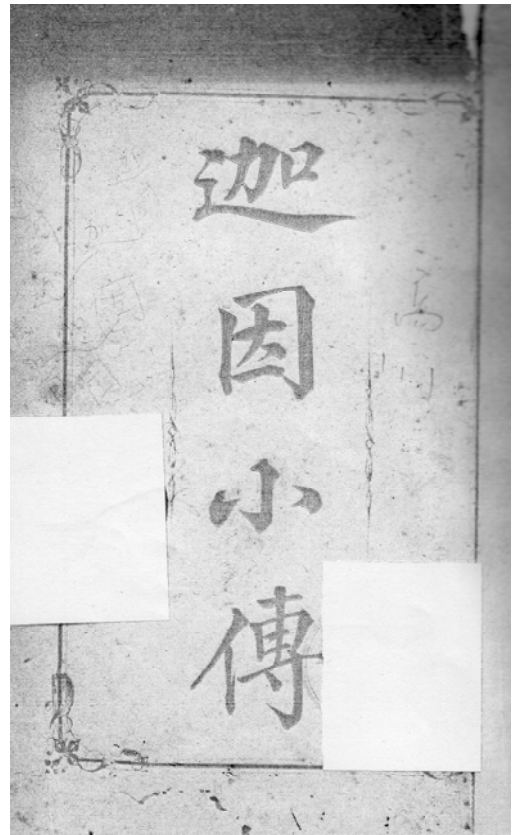 迦因小傳